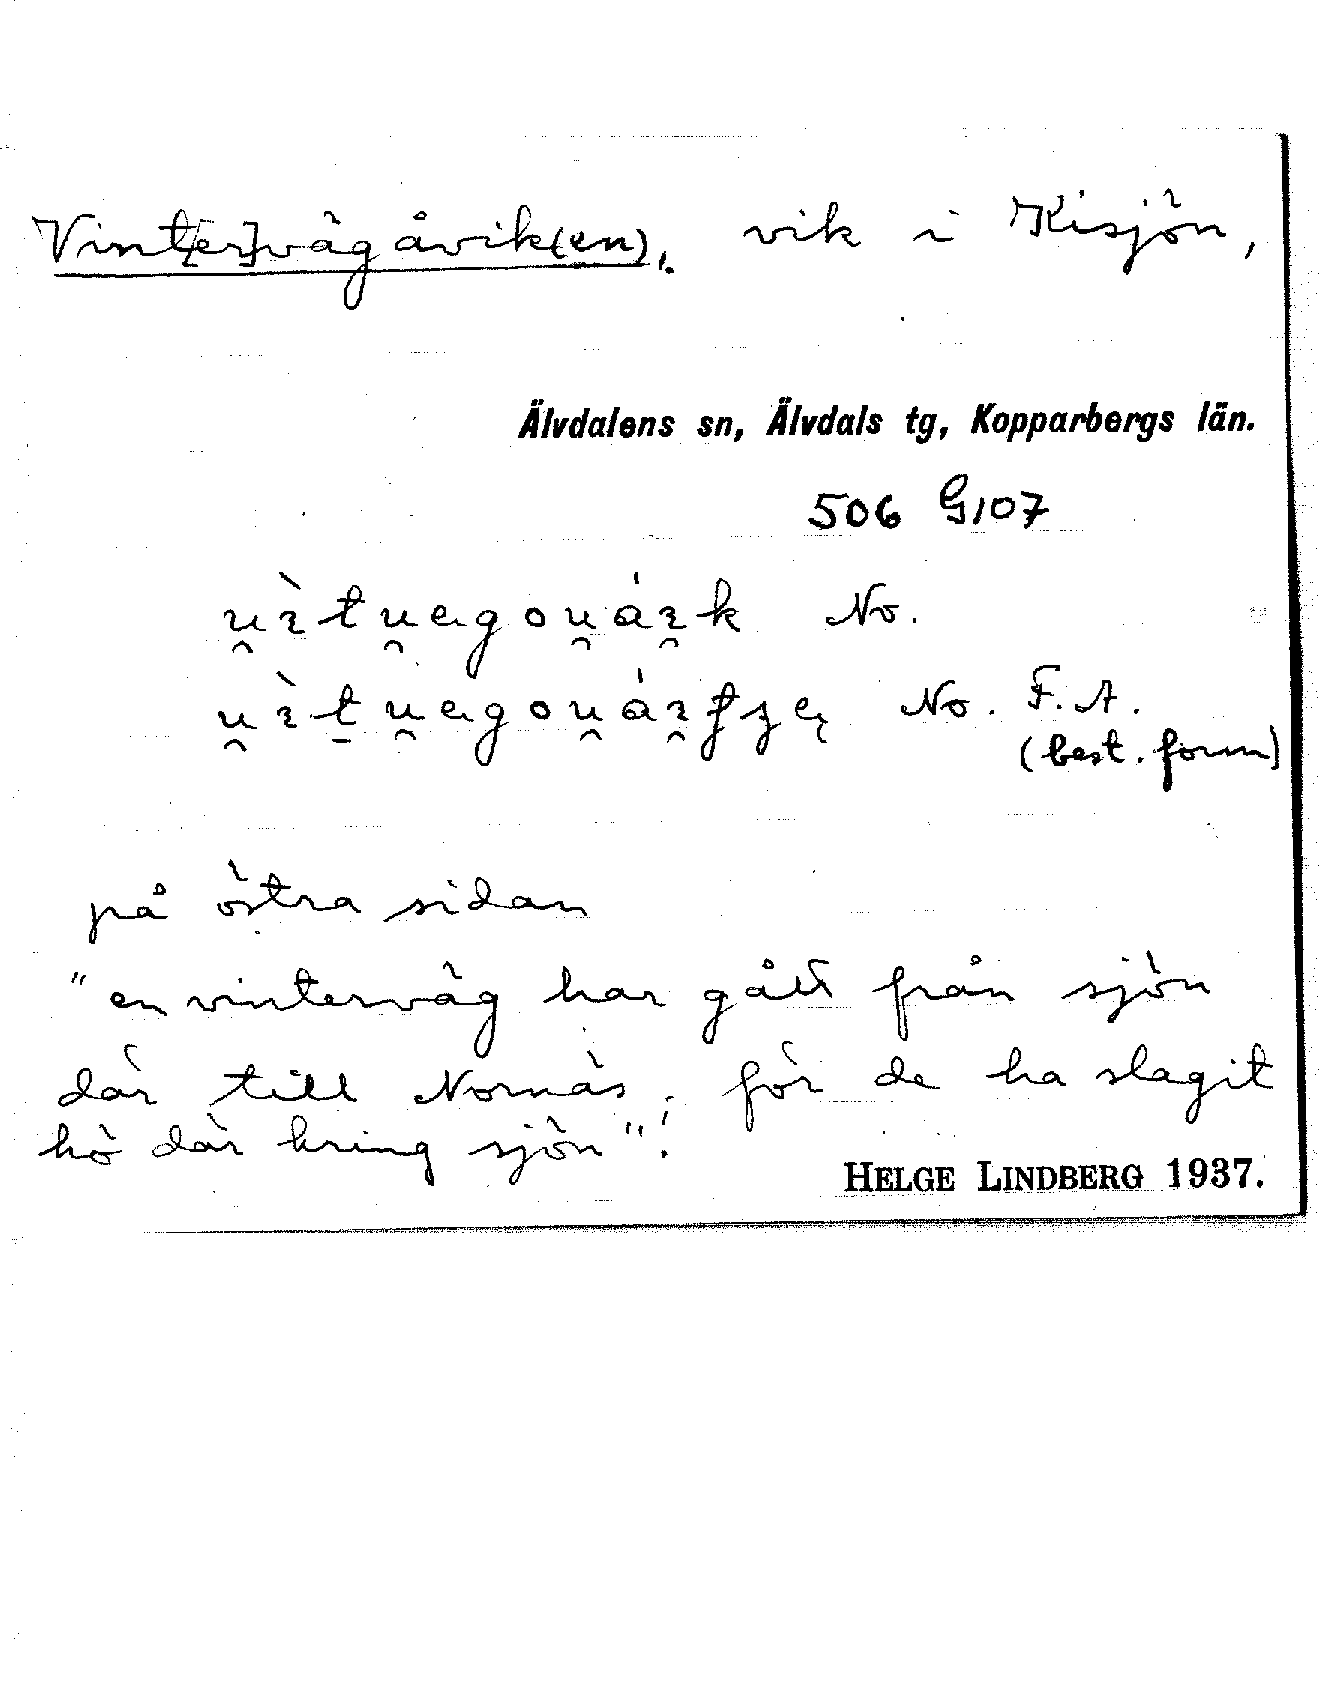 Vint[er]vägåvik(en), vik i Kisjön,
Älvdalens sn, Älvdals tg, Kopparbergs län.
506 G107
No.
No. F. A.
(best. form)
på östra sidan
"en vinterväg har gått från sjön
där till Nornäs, för de ha slagit
hö där kring sjön".
HELGE LINDBERG 1937.